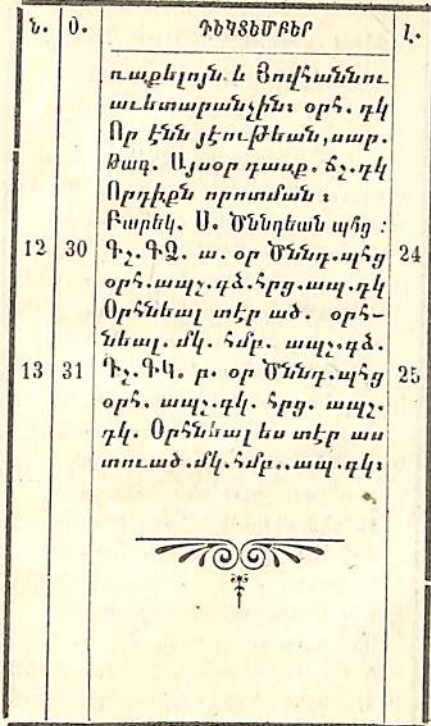 Ն. Օ. ԴԵԿՏԵՄԲԵՐ Լ.
ռաքելոյն և Յովհաննու
աւետարանչին։ օրհ. դկ
Որ էնն յէութեան, սար.
Թագ. Այսօր դասք. ճշ. դկ
Որդիքն որոտման ։
Բարեկ. Ս. Ծննդեան պհց :
12 30 Գշ. ԳՁ. ա. օր Ծննդ. պհց 24
օրհ. ապշ. գձ. հրց. ապ. դկ
Օրհնեալ տէր ած. օրհ-
նեալ. մկ. համբ. ապշ. գձ.
13 31 Դշ. ԳԿ. բ. օր Ծննդ. պհց 25
օրհ. ապշ. գկ. հրց. ապշ.
դկ. Օրհնեալ ես տէր աս
տուած. մկ. հմբ.. ապ. դկ։